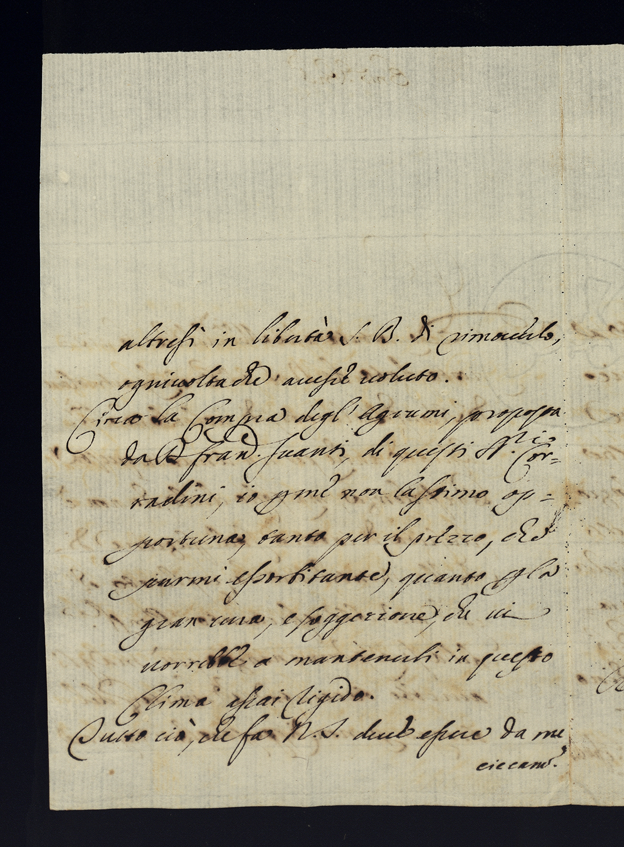 altresì in libertà S. B. di rimoverlo,
ogniuolta che auesse uoluto.
Circa la Compra degl' Agrumi, proposta
da Fran. Suanti, di questi Sri. Cor-
radini, io p me non la stimo op-
portuna, tanto per il prezzo, che
parmi esorbitante, quanto p la
gran cura, e soggezione, che ui
uorrebbe a mantenerli in questo
Clima assai rigido.
Tutto ciò, che fa N. S. deue essere da me
ciecam.